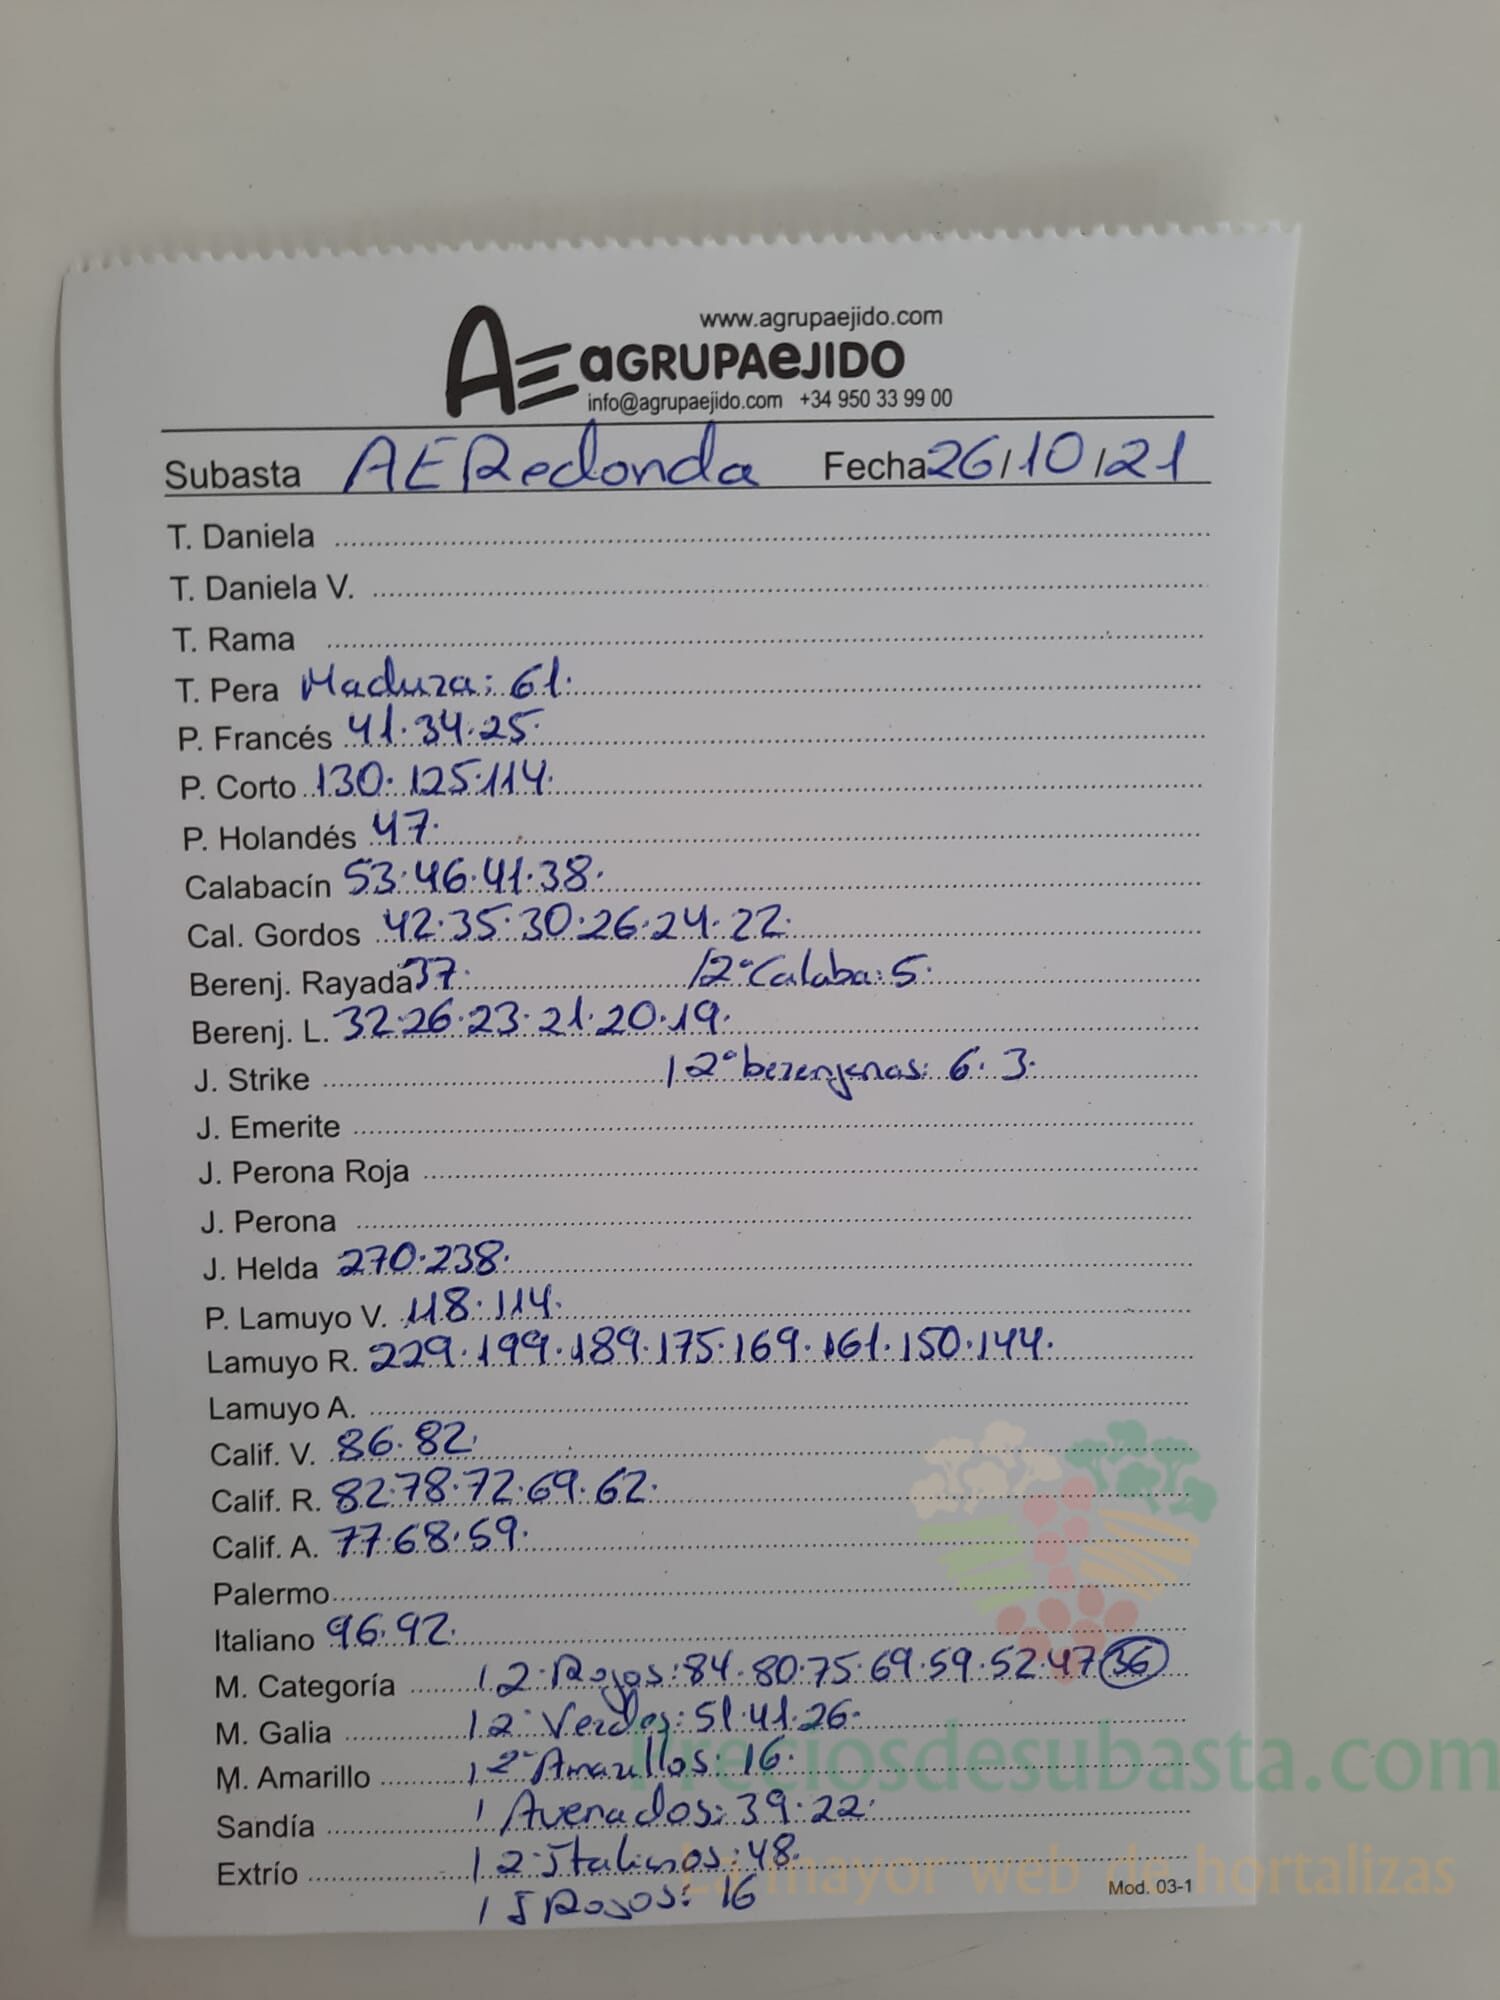 www.agrupaejido.com
AE aGRUPAeJIDO
info@agrupaejido.com +34 950 33 99 00
Subasta AERedonda Fecha 26/10/21
T. Daniela
T. Daniela V.
T. Rama
T. Pera Madura: 61.
P. Francés 41.34.25.
P. Corto 130.125.114.
P. Holandés 47.
Calabacín 53.46.41.38.
Cal. Gordos 42.35.30.26.24.22.
Berenj. Rayada 37. / 2ª Calaba: 5.
Berenj. L. 32.26.23.21.20.19.
J. Strike / 2ª berenjenas: 6.3.
J. Emerite
J. Perona Roja
J. Perona
J. Helda 270.238.
P. Lamuyo V. 118.114.
Lamuyo R. 229.199.189.175.169.161.150.144.
Lamuyo A.
Calif. V. 86.82.
Calif. R. 82.78.72.69.62.
Calif. A. 77.68.59.
Palermo
Italiano 96.92.
M. Categoría / 2ª Rojos: 84.80.75.69.59.52.47 36
M. Galia / 2ª Verdes: 51.41.26.
M. Amarillo / 2ª Amarillos: 16.
Sandía / Avenados: 39.22.
Extrío / 2ª Italinos: 48.
/ I Rojos: 16
Mod. 03-1
Preciosdesubasta.com
La mayor web de hortalizas